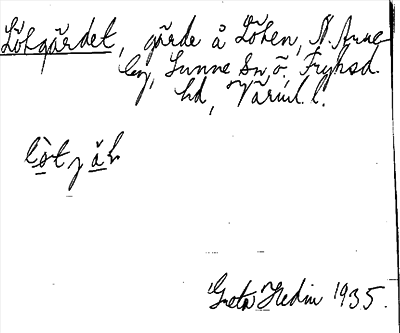 Lötgärdet, gärde å Löten, N. Ånne
by, Sunne sn ö. Fryksd.
hd, Värml. l.
Greta Hedin 1935.